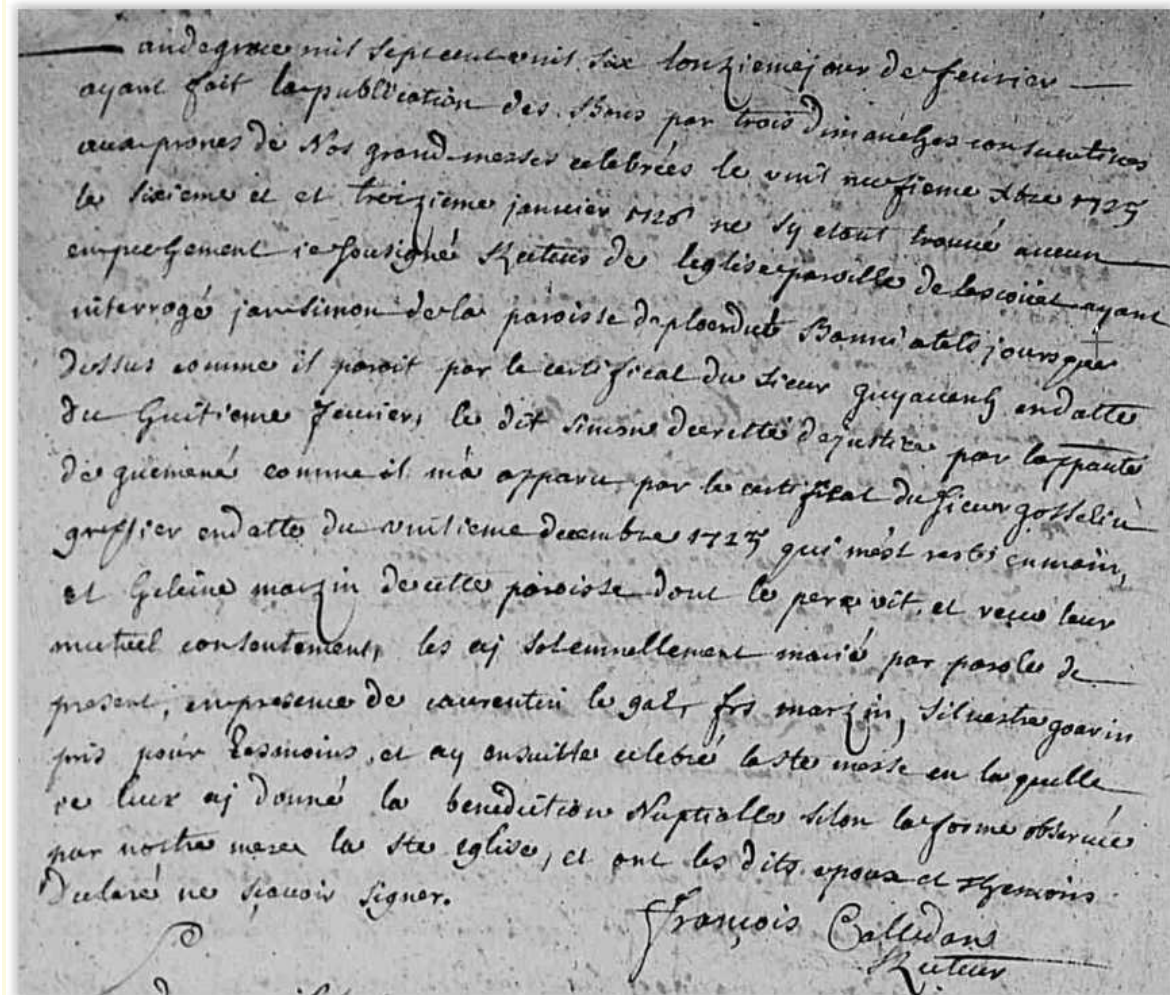 an de grace mil sept cent vint six lonzieme jour de feuvrier
ayant fait la publication des Bans par trois dimanches consecutives
aux prones de Nos grand messes celebrées le vint neufieme xbre 1725
le sixieme et et treizieme janvier 1726 ne sy etant trouvé aucun
empechement ie sousigné Recteur de leglise paroille de Lescoüet ayant
interrogé jan simon de la paroisse de ploerdut Banni atels jours que
dessus comme il paroit par le certifical du sieur en datte
du huitieme feuvier, le dit simon decretté de justice par
de guemené comme il m'a apparu par le certifical du sieur gosselin
greffier en datte du vintieme decembre 1725 qui mést resté en main,
et heleine marzin de cette paroisse dont le pere vit, et receu leur
mutuel consentement, les aj solemnellement marié par parole de
present, en presence de corentin le gal, frs marzin, silvestre goarin
pris pour tesmoins, et ay ensuitte celebré la ste messe en la quelle
ie leur aj donné la benediction Nuptialle selon la forme observée
par nostre mere la ste eglise, et ont les dits epoux et thesmoins
declaré ne sçavoir signer.
françois Calledans
Recteur